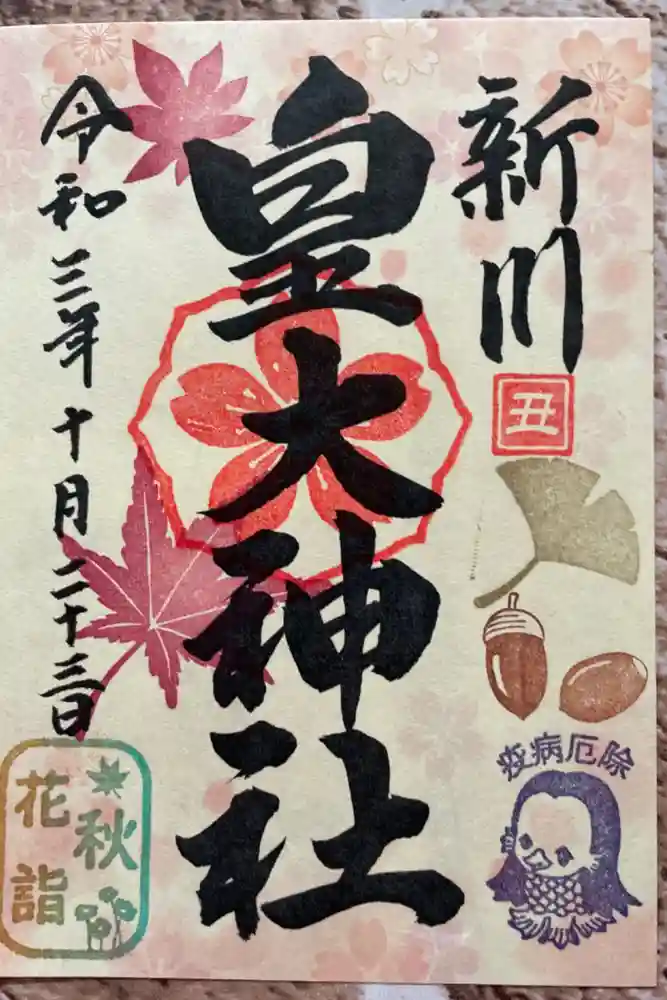 新川
丑
疫病厄除
皇大神社
令和三年十月二十三日
秋
花詣